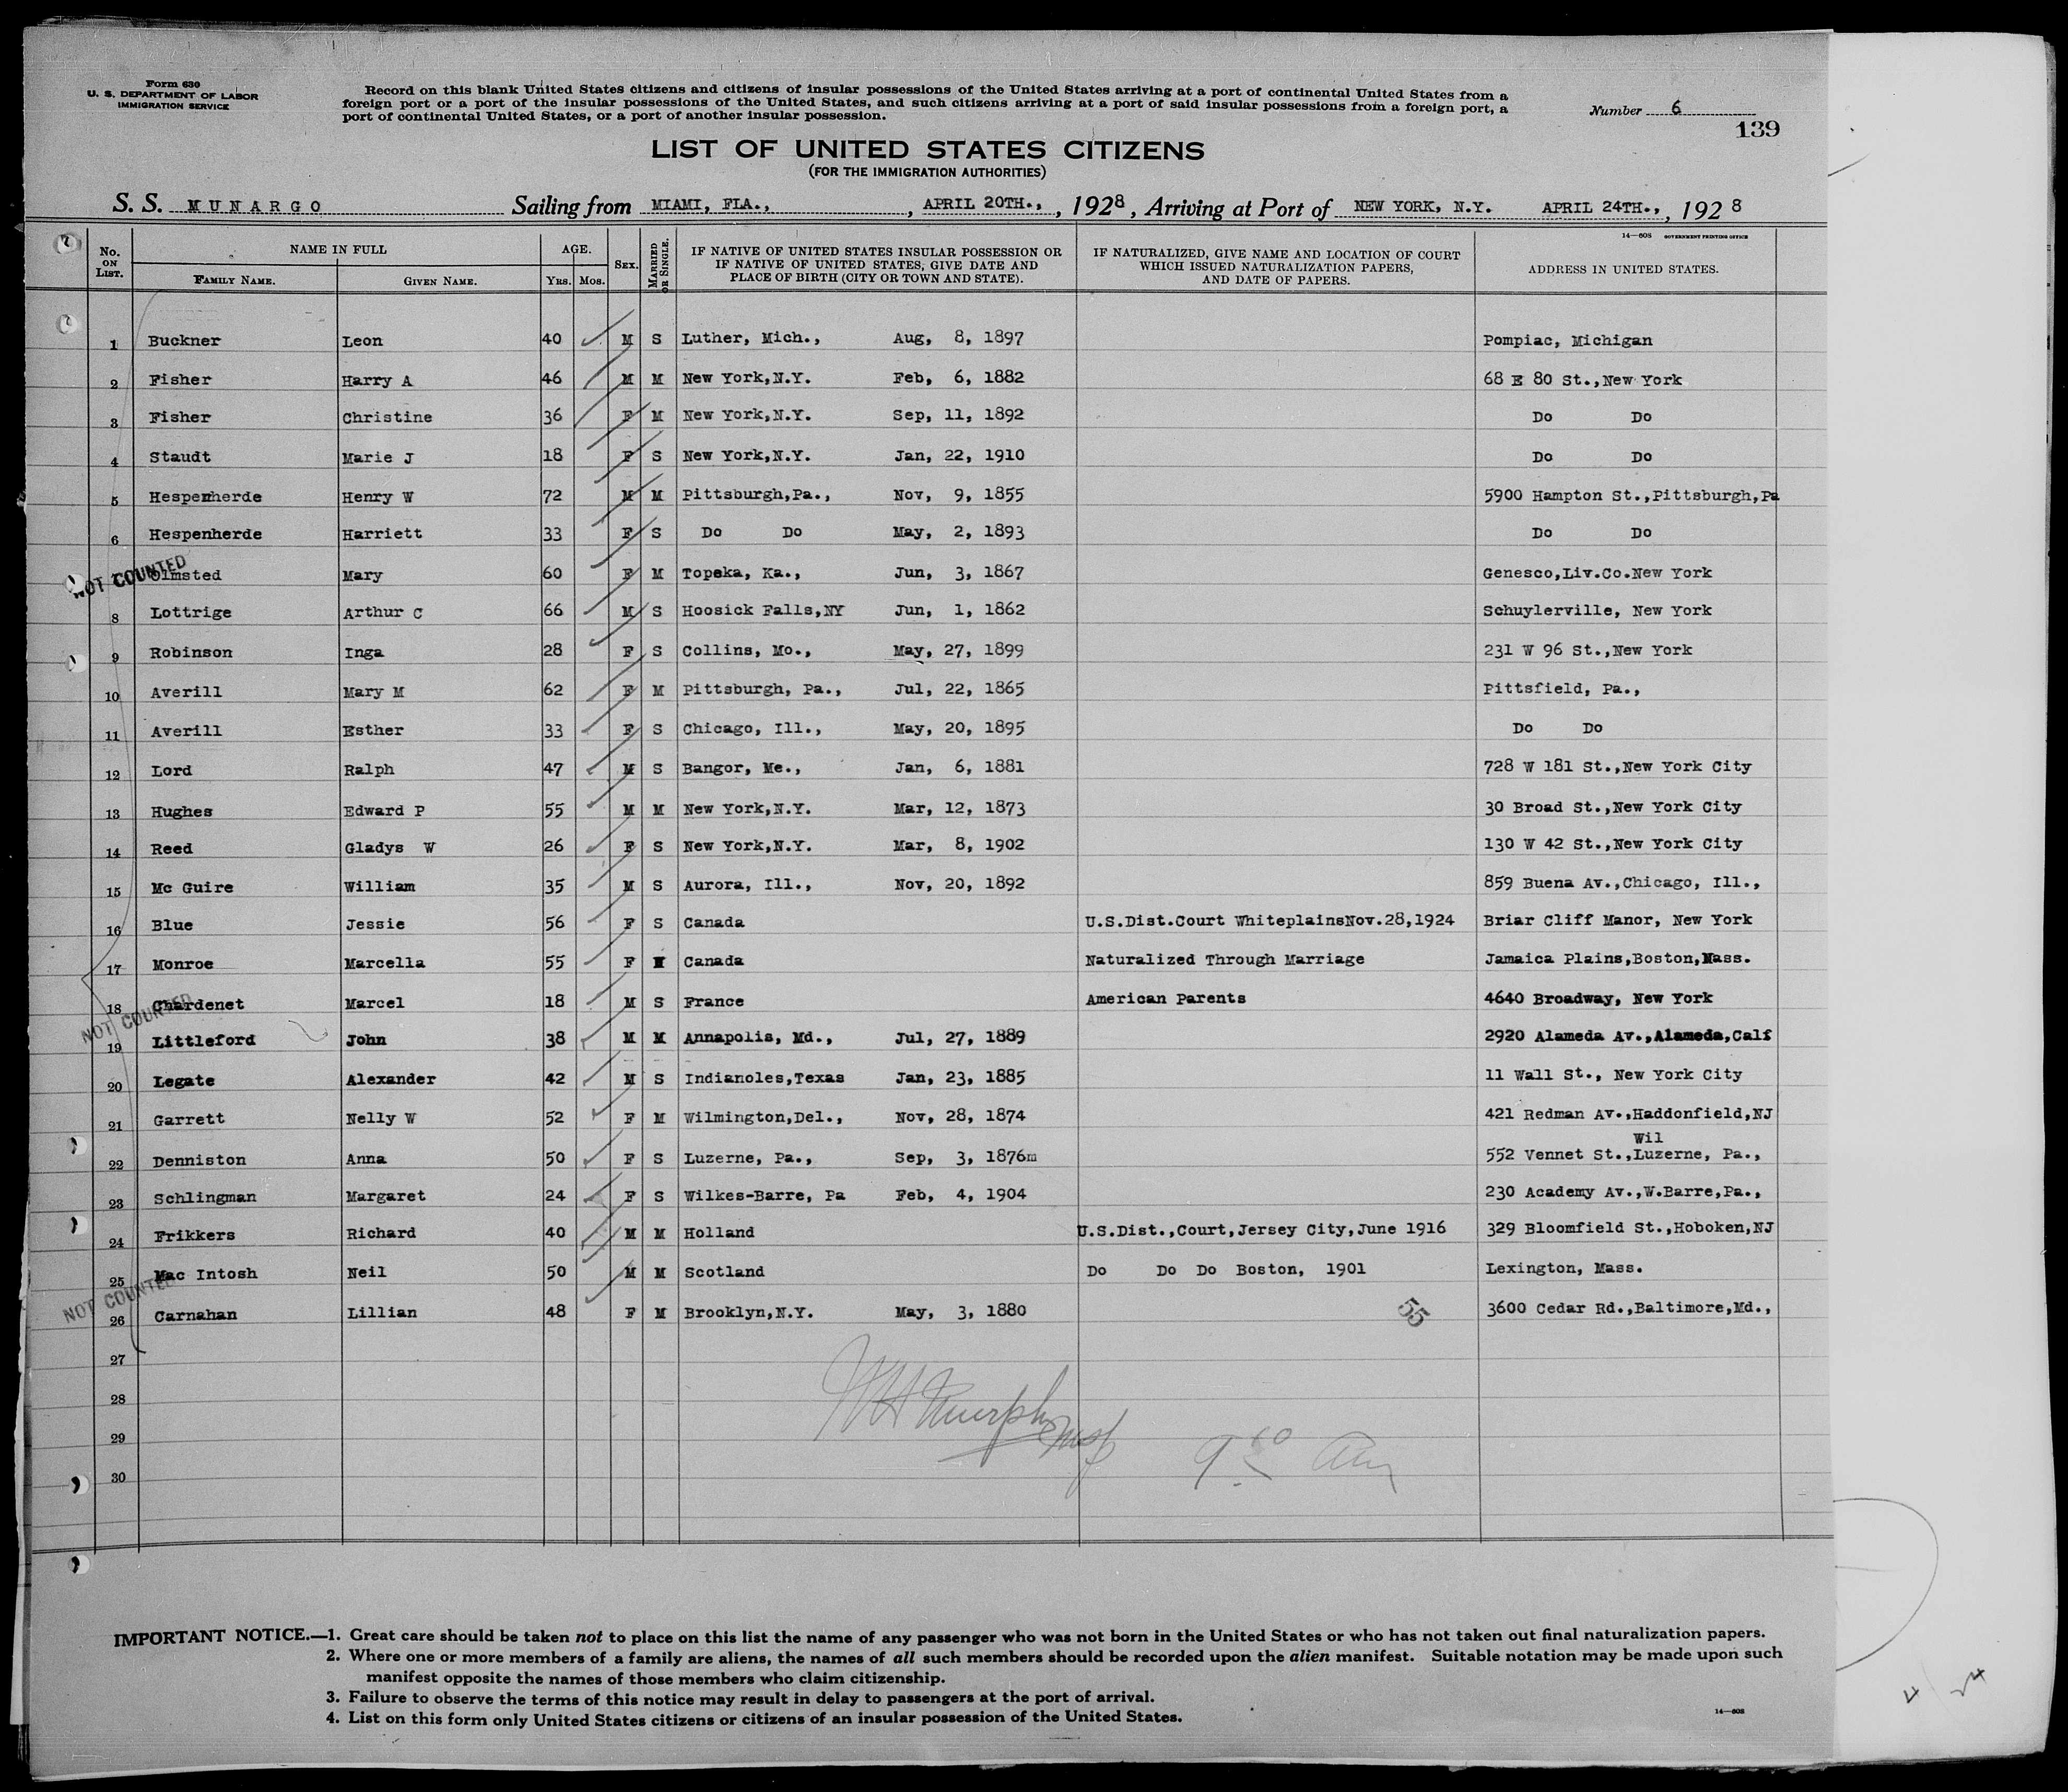 Form 630
U. S. DEPARTMENT OF LABOR
IMMIGRATION SERVICE
Record on this blank United States citizens and citizens of insular possessions of the United States arriving at a port of continental United States from a
foreign port or a port of the insular possessions of the United States, and such citizens arriving at a port of said insular possessions from a foreign port, a
port of continental United States, or a port of another insular possession.
Number 6
139
LIST OF UNITED STATES CITIZENS
(FOR THE IMMIGRATION AUTHORITIES)
S. S. MUNARGO Sailing from MIAMI, FLA., , APRIL 20TH., , 1928, Arriving at Port of NEW YORK, N.Y. APRIL 24TH., , 1928
14—608 GOVERNMENT PRINTING OFFICE
No. ON LIST. NAME IN FULL FAMILY NAME. GIVEN NAME. AGE. YRS. MOS. SEX. MARRIED OR SINGLE. IF NATIVE OF UNITED STATES INSULAR POSSESSION OR IF NATIVE OF UNITED STATES, GIVE DATE AND PLACE OF BIRTH (CITY OR TOWN AND STATE). IF NATURALIZED, GIVE NAME AND LOCATION OF COURT WHICH ISSUED NATURALIZATION PAPERS, AND DATE OF PAPERS. ADDRESS IN UNITED STATES.
1 Buckner Leon 40 M S Luther, Mich., Aug, 8, 1897 Pompiac, Michigan
2 Fisher Harry A 46 M M New York,N.Y. Feb, 6, 1882 68 E 80 St.,New York
3 Fisher Christine 36 F M New York,N.Y. Sep, 11, 1892 Do Do
4 Staudt Marie J 18 F S New York,N.Y. Jan, 22, 1910 Do Do
5 Hespenherde Henry W 72 M M Pittsburgh,Pa., Nov, 9, 1855 5900 Hampton St.,Pittsburgh,Pa
6 Hespenherde Harriett 33 F S Do Do May, 2, 1893 Do Do
NOT COUNTED
7 Olmsted Mary 60 F M Topeka, Ka., Jun, 3, 1867 Genesco,Liv.Co.New York
8 Lottrige Arthur C 66 M S Hoosick Falls,NY Jun, 1, 1862 Schuylerville, New York
9 Robinson Inga 28 F S Collins, Mo., May, 27, 1899 231 W 96 St.,New York
10 Averill Mary M 62 F M Pittsburgh, Pa., Jul, 22, 1865 Pittsfield, Pa.,
11 Averill Esther 33 F S Chicago, Ill., May, 20, 1895 Do Do
12 Lord Ralph 47 M S Bangor, Me., Jan, 6, 1881 728 W 181 St.,New York City
13 Hughes Edward P 55 M M New York,N.Y. Mar, 12, 1873 30 Broad St.,New York City
14 Reed Gladys W 26 F S New York,N.Y. Mar, 8, 1902 130 W 42 St.,New York City
15 Mc Guire William 35 M S Aurora, Ill., Nov, 20, 1892 859 Buena Av.,Chicago, Ill.,
16 Blue Jessie 56 F S Canada U.S.Dist.Court WhiteplainsNov.28,1924 Briar Cliff Manor, New York
17 Monroe Marcella 55 F M Canada Naturalized Through Marriage Jamaica Plains,Boston,Mass.
18 Chardenet Marcel 18 M S France American Parents 4640 Broadway, New York
NOT COUNTED
19 Littleford John 38 M M Annapolis, Md., Jul, 27, 1889 2920 Alameda Av.,Alameda,Calf
20 Legate Alexander 42 M S Indianoles,Texas Jan, 23, 1885 11 Wall St., New York City
21 Garrett Nelly W 52 F M Wilmington,Del., Nov, 28, 1874 421 Redman Av.,Haddonfield,NJ
Wil
22 Denniston Anna 50 F S Luzerne, Pa., Sep, 3, 1876m 552 Vennet St.,Luzerne, Pa.,
23 Schlingman Margaret 24 F S Wilkes-Barre, Pa Feb, 4, 1904 230 Academy Av.,W.Barre,Pa.,
24 Frikkers Richard 40 M M Holland U.S.Dist.,Court,Jersey City,June 1916 329 Bloomfield St.,Hoboken,NJ
25 Mac Intosh Neil 50 M M Scotland Do Do Do Boston, 1901 Lexington, Mass.
NOT COUNTED
26 Carnahan Lillian 48 F M Brooklyn,N.Y. May, 3, 1880 3600 Cedar Rd.,Baltimore,Md.,
55
27
28
29
30
WH Murphy Insp
9 50 Am
IMPORTANT NOTICE.—1. Great care should be taken not to place on this list the name of any passenger who was not born in the United States or who has not taken out final naturalization papers.
2. Where one or more members of a family are aliens, the names of all such members should be recorded upon the alien manifest. Suitable notation may be made upon such
manifest opposite the names of those members who claim citizenship.
3. Failure to observe the terms of this notice may result in delay to passengers at the port of arrival.
4. List on this form only United States citizens or citizens of an insular possession of the United States.
14—608